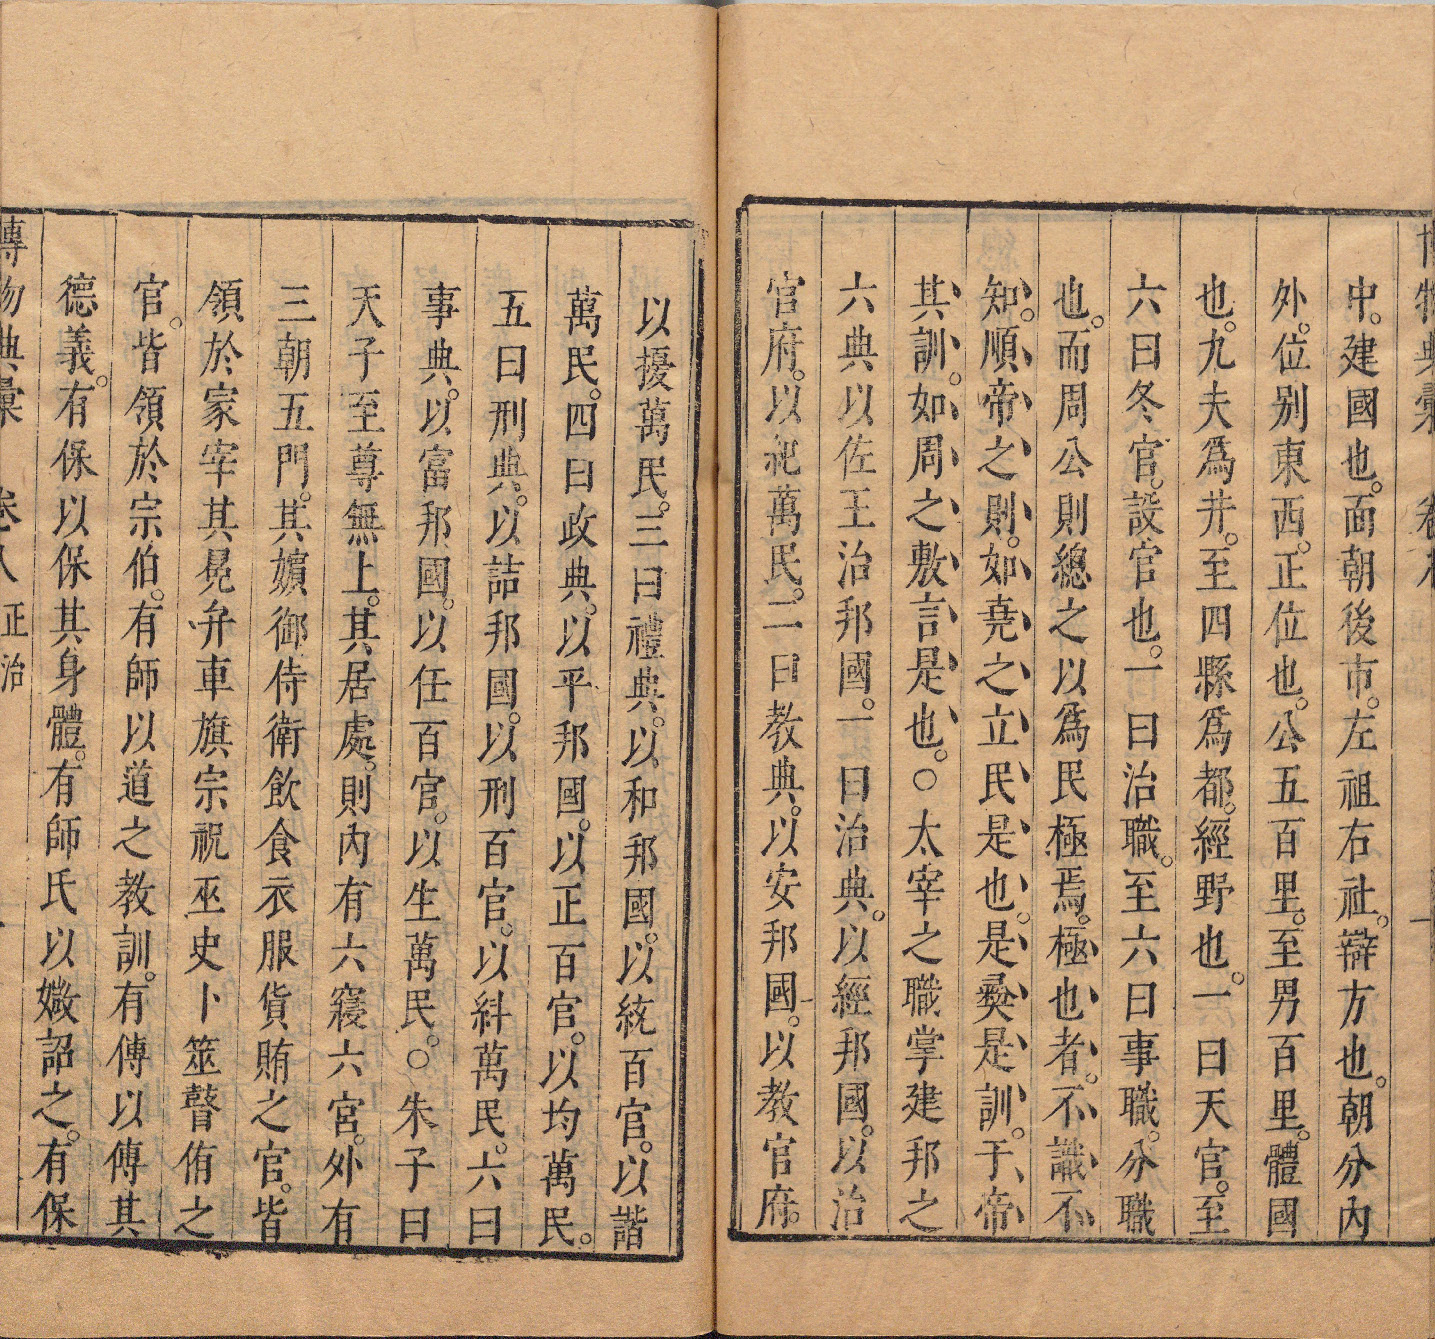 博物典彙 卷八 一
中。建國也。面朝後市。左祖右社。辯方也。朝分內
外。位别東西。正位也。公五百里。至男百里。體國
也。九夫爲井。至四縣爲都。經野也。一曰天官。至
六曰冬官。設官也。一曰治職。至六曰事職。分職
也。而周公則總之以爲民極焉。極也者。不識不
知。順帝之則。如堯之立民是也。是彝是訓。于帝
其訓。如周之敷言是也。○太宰之職掌建邦之
六典以佐王治邦國。一曰治典。以經邦國。以治
官府。以紀萬民。二曰教典。以安邦國。以教官府。
以擾萬民。三曰禮典。以和邦國。以統百官。以諧
萬民。四曰政典。以平邦國。以正百官。以均萬民。
五曰刑典。以詰邦國。以刑百官。以糾萬民。六曰
事典。以富邦國。以任百官。以生萬民。○朱子曰
天子至尊無上。其居處。則內有六寢六宮。外有
三朝五門。其嬪御侍衛飲食衣服貨賄之官。皆
領於冢宰其冕弁車旗宗祝巫史卜筮瞽侑之
官。皆領於宗伯。有師以道之教訓。有傅以傅其
德義。有保以保其身體。有師氏以媺詔之。有保
博物典彙 卷八 正治